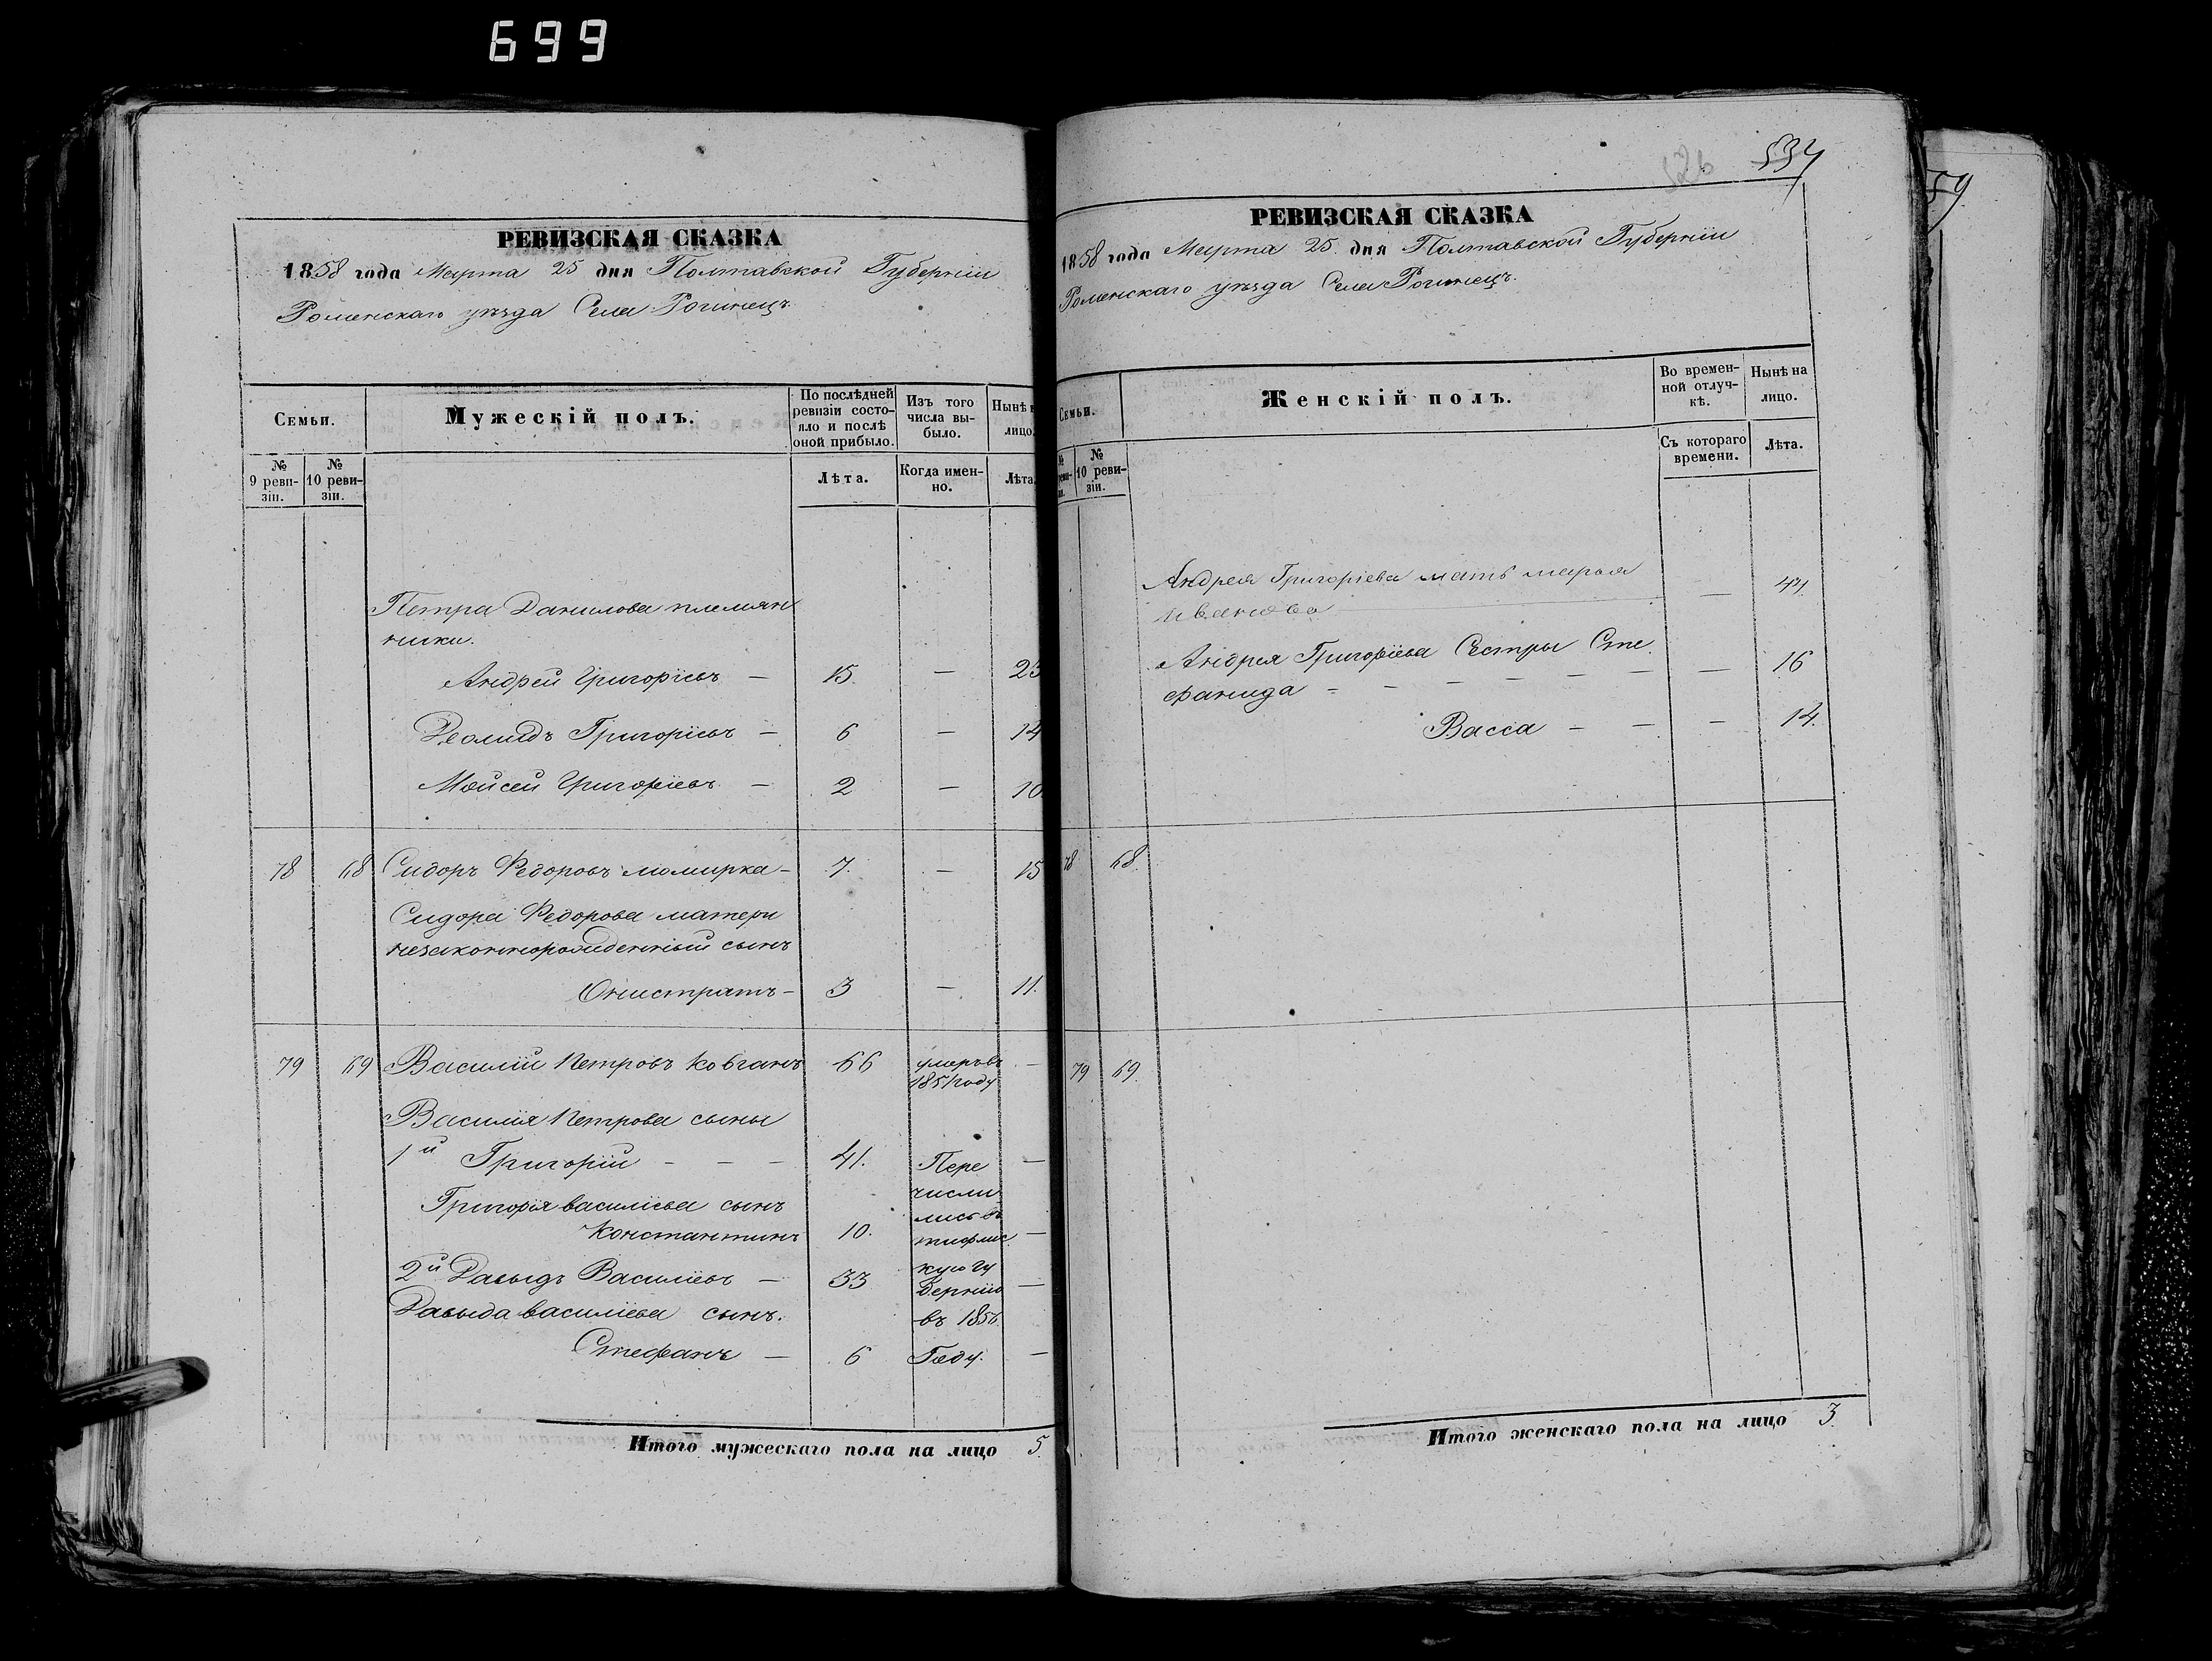 699
РЕВИЗСКАЯ СКАЗКА
1858 года Марта 25 дня Полтавской Губерніи
Роменскаго уѣзда Села Рогинецъ.
Семьи.
Мужескій полъ.
По послѣдней ревизіи состояло и послѣ оной прибыло.
Изъ того числа выбыло.
Нынѣ
лицо.
№ 9 ревизіи.
№ 10 ревизіи.
Лѣта.
Когда именно.
Лѣта.
Петра Данилова племян
ники.
Андрей Григорьевъ — 15. — 23
Леонидъ Григорьевъ — 6 — 14
Мойсей Григорьевъ — 2 — 10
78 68 Сидоръ Федоровъ — 7. — 15
Сидора Федорова матери
незаконнорожденный сынъ
Онистратъ — 3 — 11.
79 69 Василій Петровъ Ковганъ 66 умеръ въ 1851 году —
Василія Петрова сыны
1й Григорій — — — 41. Пере —
числи
Григорія васильева сынъ
лись въ
Константинъ 10. тифлис —
кую Гу
2й Давыдъ Васильевъ — 33 берніи —
Давыда васильева сынъ. въ 1856
Стефанъ — 6 Году. —
Итого мужескаго пола на лицо 5.
126 534
РЕВИЗСКАЯ СКАЗКА
1858 года Марта 25. дня Полтавской Губерніи
Роменскаго уѣзда Села Рогинецъ.
Семьи.
Женскій полъ.
Во временной отлучкѣ.
Нынѣ на лицо.
№ 10 ревизіи.
Съ котораго времени.
Лѣта.
Андрея Григорьева мать марья
иванова — 44
Андрея Григорьева Сестры Сте
фанида - - - - - - — 16
Васса — — — 14.
78 68.
79 69.
Итого женскаго пола на лицо 3.
59